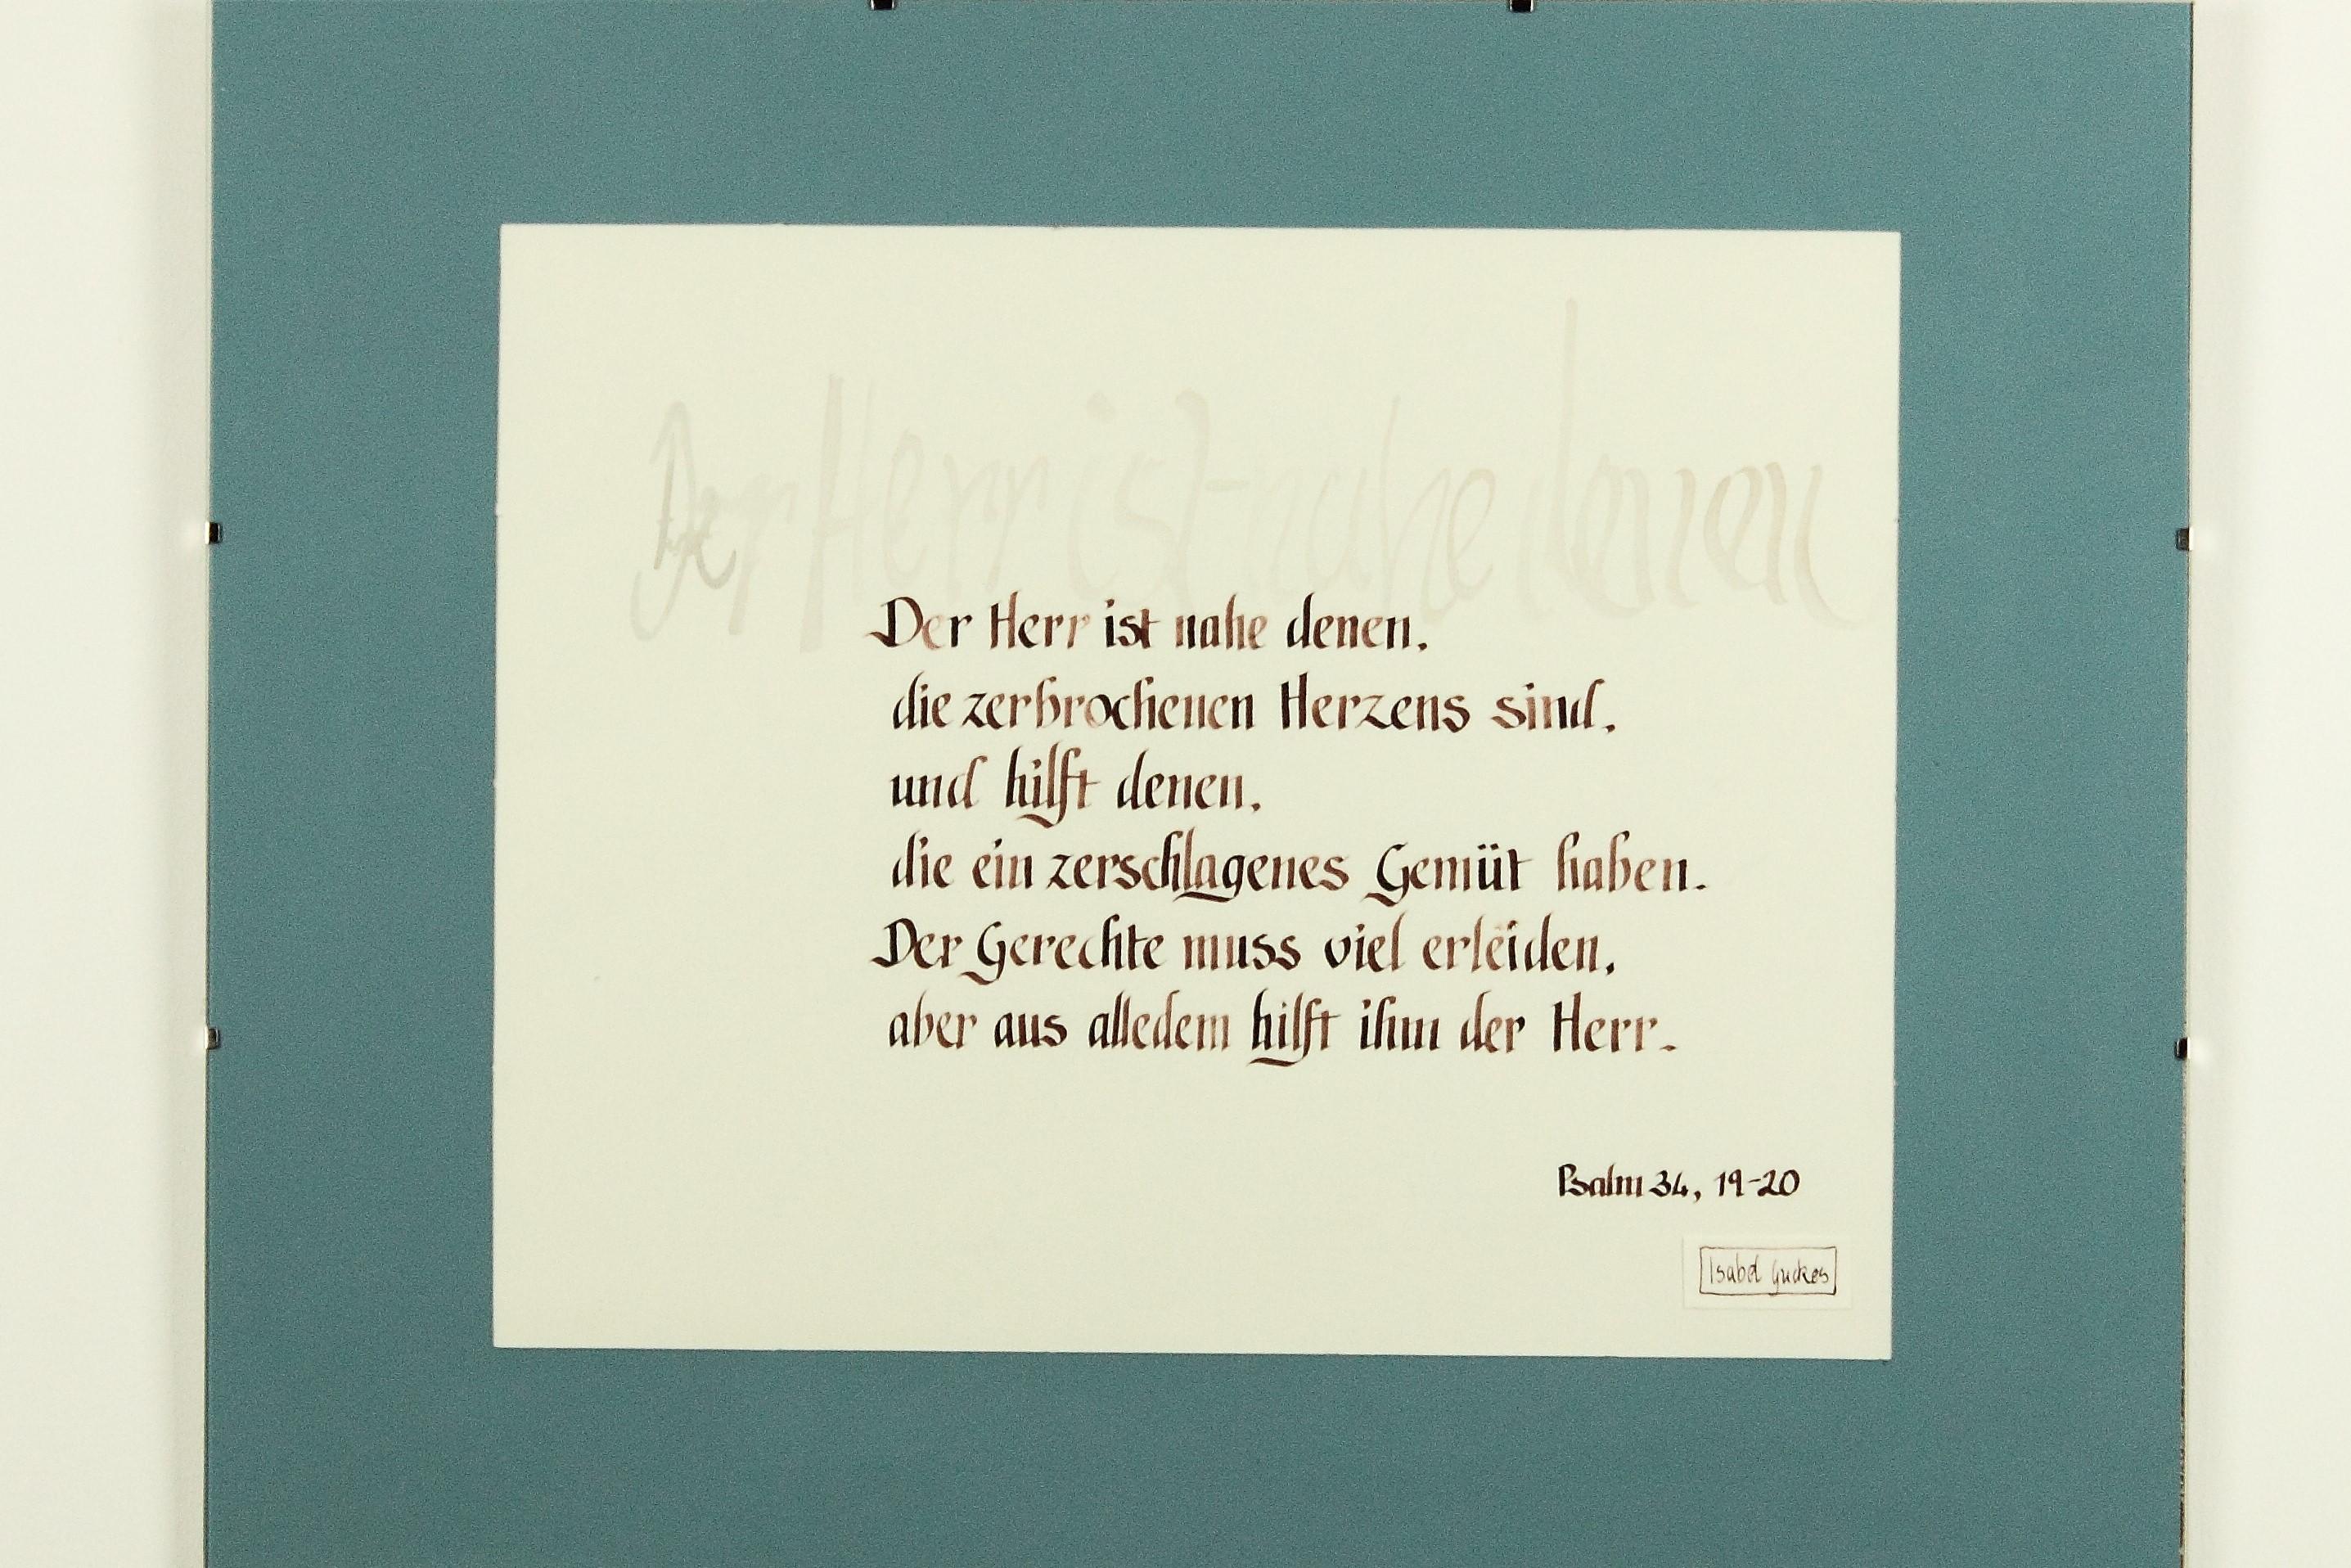 Der Herr ist nahe denen
Der Herr ist nahe denen,
die zerbrochenen Herzens sind,
und hilft denen,
die ein zerschlagenes Gemüt haben.
Der Gerechte muss viel erleiden,
aber aus alledem hilft ihm der Herr.
Psalm 34, 19-20
Isabel Guckes